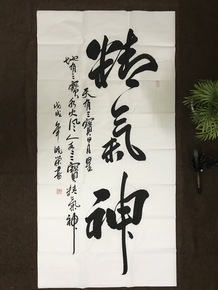 精氣神
天有三寳日月星
地有三寳水火风人有三寳精氣神
戊戌年
書